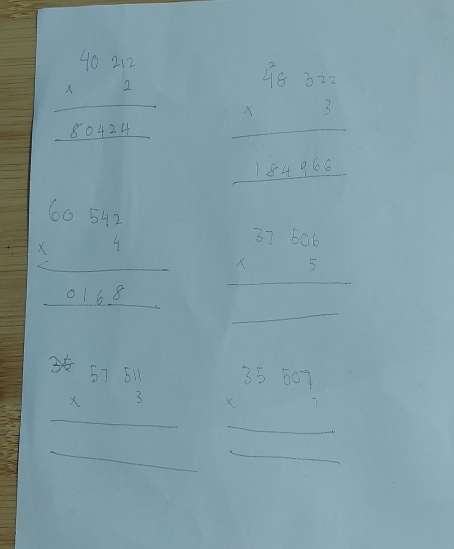 40 212
x 2
80424
2
48 322
x 3
184966
60 542
x 4
0168
37 506
x 5
57 511
x 3
35 507
x